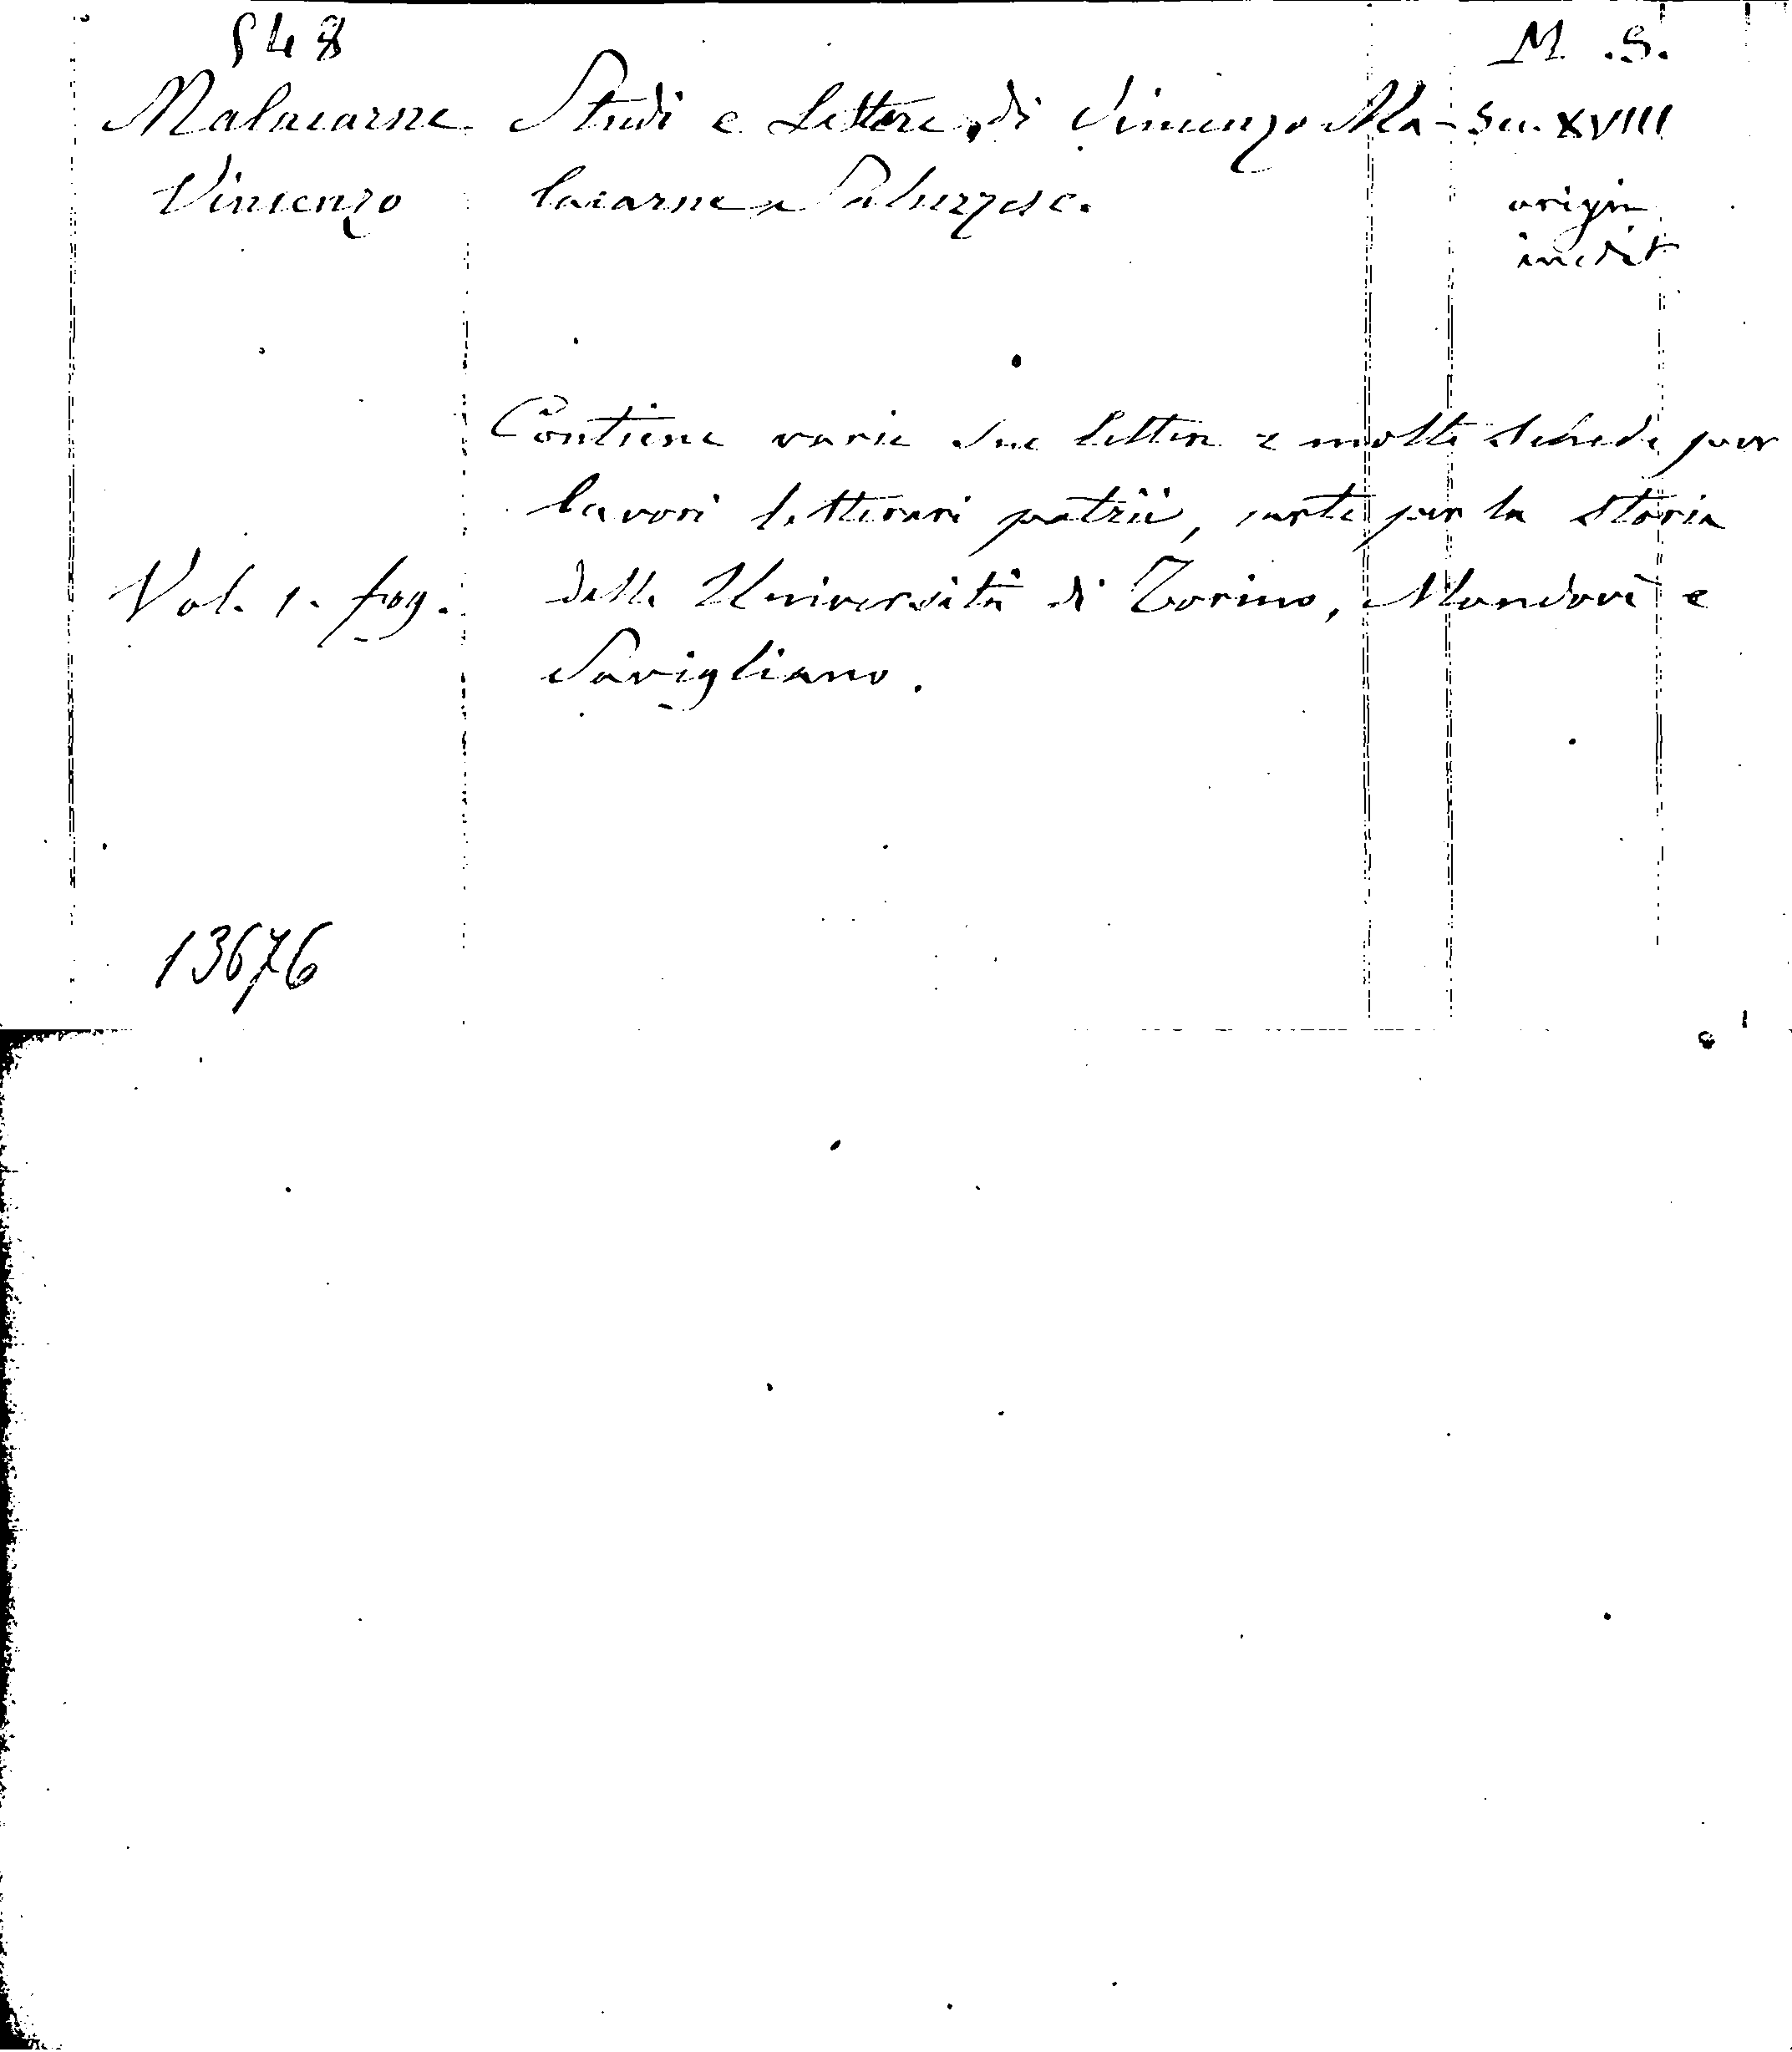 548
M. S.
Malacarne Studi e Lettere di Vincenzo Ma- Sec. XVIII
Vincenzo lacarne Saluzzese. origin
inedit
Contiene varie sue lettere e molte schede per
lavori letterari patrii, carte per la storia
Vol. 1. fog. delle Università di Torino, Mondovì e
Savigliano.
13676